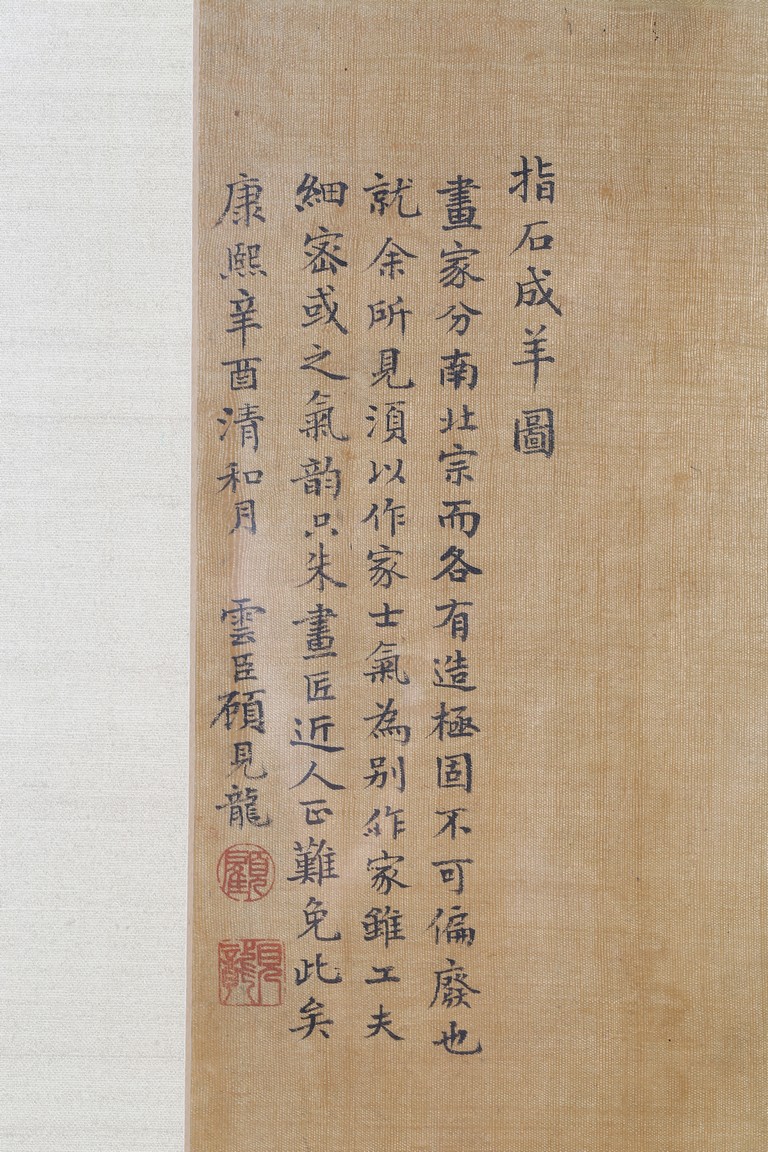 指石成羊圖
畫家分南北宗而各有造極固不可偏廢也
就余所見須以作家士氣為别作家雖工夫
細密或之氣韵只朱畫匠近人正難免此矣
康熙辛酉清和月 雲臣顧見龍
顧
見龍